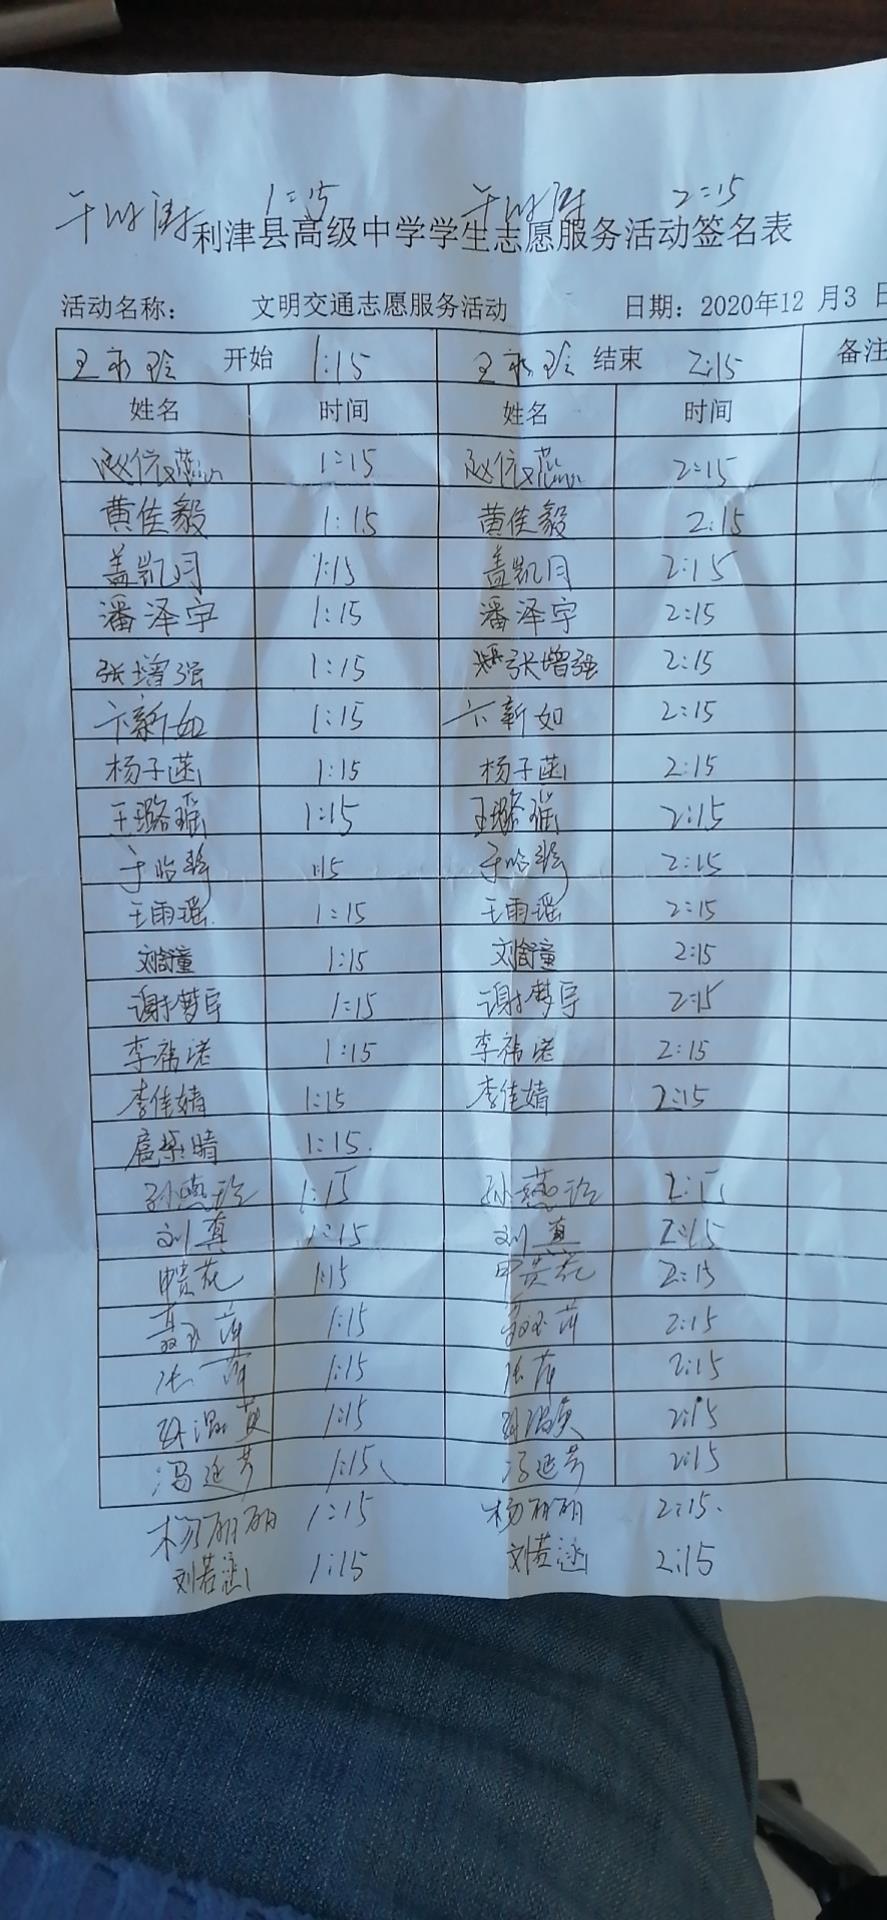 1:15 2:15
利津县高级中学学生志愿服务活动签名表
活动名称： 文明交通志愿服务活动 日期：2020年12月3日
王 开始 1:15 王 结束 2:15 备注
姓名 时间 姓名 时间
赵 1:15 赵 2:15
黄佳毅 1:15 黄佳毅 2:15
盖凯月 1:15 盖凯月 2:15
潘泽宇 1:15 潘泽宇 2:15
张增强 1:15 张增强 2:15
卞新如 1:15 卞新如 2:15
杨子菡 1:15 杨子菡 2:15
王璐瑶 1:15 王璐瑶 2:15
于 :15 于 2:15
王雨瑶 1:15 王雨瑶 2:15
刘舒童 1:15 刘舒童 2:15
谢梦 1:15 谢梦 2:15
李祎诺 1:15 李祎诺 2:15
李佳婧 1:15 李佳婧 2:15
晴 1:15.
孙燕玲 1:15 孙燕玲 2:15
刘真 1:15 刘真 2:15
申贵花 1:15 申贵花 2:15
萍 1:15 萍 2:15
张萍 1:15 张萍 2:15
英 1:15 英 2:15
冯延芳 1:15、 冯延芳 2:15
杨丽丽 1:15 杨丽丽 2:15.
刘若涵 1:15 刘若涵 2:15